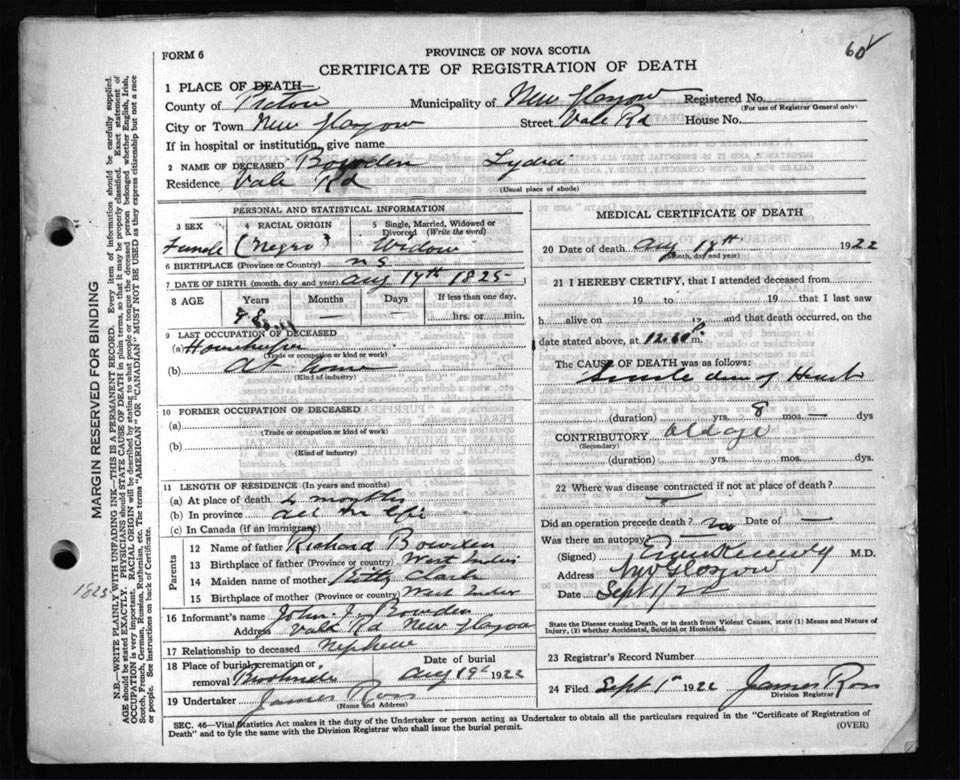 60
FORM 6
PROVINCE OF NOVA SCOTIA
CERTIFICATE OF REGISTRATION OF DEATH
1 PLACE OF DEATH
County of Pictou Municipality of New Glasgow Registered No.
(For use of Registrar General only)
City or Town New Glasgow Street Vale Rd House No.
If in hospital or institution, give name
2 NAME OF DECEASED Bowden Lydia
Residence Vale Rd (Usual place of abode)
PERSONAL AND STATISTICAL INFORMATION
3 SEX 4 RACIAL ORIGIN 5 Single, Married, Widowed or Divorced (Write the word)
Female (Negro) Widow
6 BIRTHPLACE (Province or Country) N S
7 DATE OF BIRTH (month, day and year) Aug 1825
8 AGE Years Months Days If less than one day,
— — hrs. or min.
9 LAST OCCUPATION OF DECEASED
(a) Housekeeper
(Trade or occupation or kind or work)
(b) At home
(Kind of industry)
10 FORMER OCCUPATION OF DECEASED
(a)
(Trade or occupation or kind of work)
(b)
(Kind of industry)
11 LENGTH OF RESIDENCE (In years and months)
(a) At place of death 4 months
(b) In province all her life
(c) In Canada (if an immigrant)
Parents
12 Name of father Richard Bowden
13 Birthplace of father (Province or country) West Indies
14 Maiden name of mother Kitty Clark
15 Birthplace of mother (Province or country) West Indies
16 Informant's name John J. Bowden
Address Vale Rd New Glasgow
17 Relationship to deceased nephew
18 Place of burial, cremation or removal Brookside Date of burial Aug 19th 1922
19 Undertaker James Ross
(Name and Address)
MEDICAL CERTIFICATE OF DEATH
20 Date of death Aug 1922
(Month, day and year)
21 I HEREBY CERTIFY, that I attended deceased from
19 to 19 that I last saw
h alive on 19 and that death occurred, on the
date stated above, at m.
The CAUSE OF DEATH was as follows:
Heart
(duration) yrs. 8 mos. — dys
CONTRIBUTORY old age
(Secondary)
(duration) yrs. mos. dys.
22 Where was disease contracted if not at place of death?
—
Did an operation precede death? no Date of —
Was there an autopsy?
(Signed) Kennedy M.D.
Address New Glasgow
Date Sept 1/22
State the Disease causing Death, or in death from Violent Causes, state (1) Means and Nature of
Injury, (2) whether Accidental, Suicidal or Homicidal.
23 Registrar's Record Number
24 Filed Sept 1st 1922 James Ross
Division Registrar
SEC. 46—Vital Statistics Act makes it the duty of the Undertaker or person acting as Undertaker to obtain all the particulars required in the "Certificate of Registration of
Death" and to fyle the same with the Division Registrar who shall issue the burial permit. (OVER)
MARGIN RESERVED FOR BINDING
N.B.—WRITE PLAINLY WITH UNFADING INK—THIS IS A PERMANENT RECORD. Every item of information should be carefully supplied.
AGE should be stated EXACTLY. PHYSICIANS should STATE CAUSE OF DEATH in plain terms, so that it may be properly classified. Exact statement of
OCCUPATION is very important. RACIAL ORIGIN will be described by stating to what people or tongue the deceased person belonged, whether English, Irish,
Scotch, French, German, Russian, Ruthenian, etc. The terms "AMERICAN" OR "CANADIAN" MUST NOT BE USED as they express citizenship but not a race
or people. See instructions on back of Certificate.
1825